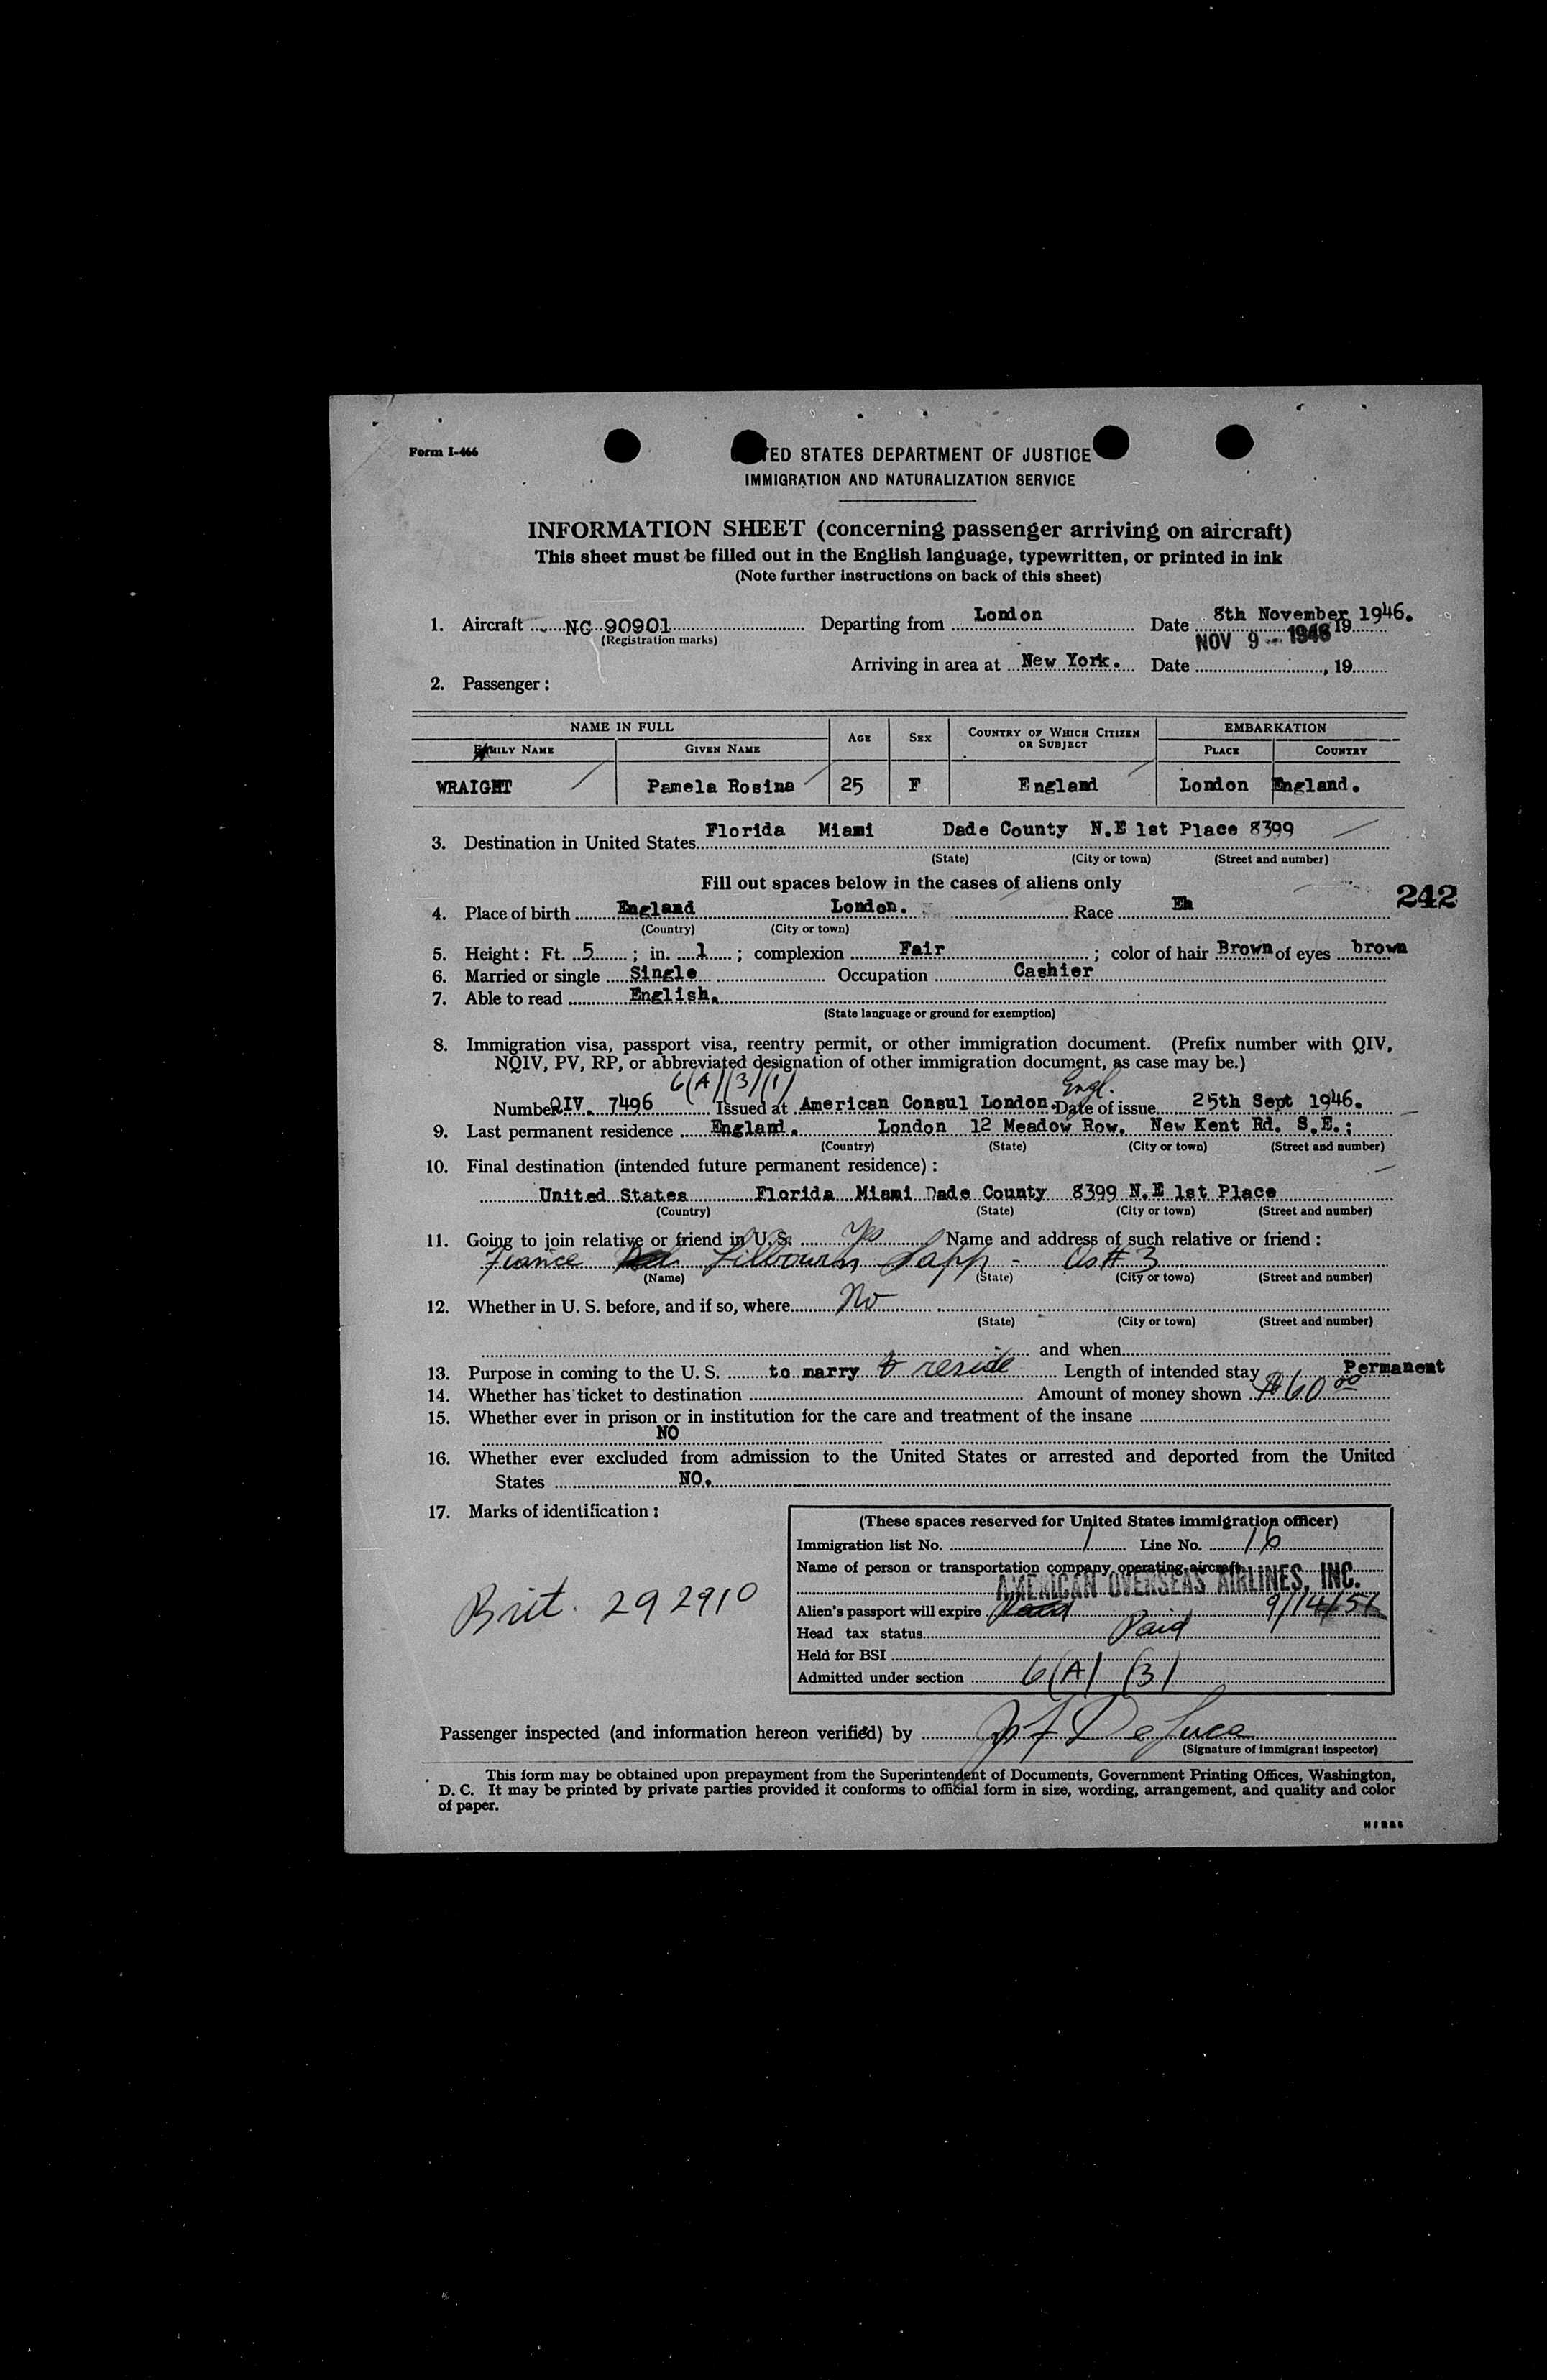 Form I-466
UNITED STATES DEPARTMENT OF JUSTICE
IMMIGRATION AND NATURALIZATION SERVICE
INFORMATION SHEET (concerning passenger arriving on aircraft)
This sheet must be filled out in the English language, typewritten, or printed in ink
(Note further instructions on back of this sheet)
1. Aircraft NC 90901 Departing from London Date 8th November 1946. 19
(Registration marks) NOV 9 - 1946
Arriving in area at New York. Date , 19
2. Passenger:
NAME IN FULL AGE SEX COUNTRY OF WHICH CITIZEN OR SUBJECT EMBARKATION
FAMILY NAME GIVEN NAME PLACE COUNTRY
WRAIGHT Pamela Rosina 25 F England London England.
3. Destination in United States Florida Miami Dade County N.E 1st Place 8399
(State) (City or town) (Street and number)
Fill out spaces below in the cases of aliens only
242
4. Place of birth England London. Race Eh
(Country) (City or town)
5. Height: Ft. 5 ; in. 1 ; complexion Fair ; color of hair Brown of eyes brown
6. Married or single Single Occupation Cashier
7. Able to read English.
(State language or ground for exemption)
8. Immigration visa, passport visa, reentry permit, or other immigration document. (Prefix number with QIV,
NQIV, PV, RP, or abbreviated designation of other immigration document, as case may be.)
6(A)(3)(1) Engl.
Number QIV. 7496 Issued at American Consul London. Date of issue 25th Sept 1946.
9. Last permanent residence England. London 12 Meadow Row. New Kent Rd. S.E.:
(Country) (State) (City or town) (Street and number)
10. Final destination (intended future permanent residence):
United States Florida Miami Dade County 8399 N.E 1st Place
(Country) (State) (City or town) (Street and number)
11. Going to join relative or friend in U.S. Yes Name and address of such relative or friend:
Fiance Lilbourn Sapp - As # 3
(Name) (State) (City or town) (Street and number)
12. Whether in U. S. before, and if so, where No
(State) (City or town) (Street and number)
and when
13. Purpose in coming to the U. S. to marry & reside Length of intended stay Permanent
14. Whether has ticket to destination Amount of money shown $60 00
15. Whether ever in prison or in institution for the care and treatment of the insane
NO
16. Whether ever excluded from admission to the United States or arrested and deported from the United
States NO.
17. Marks of identification:
(These spaces reserved for United States immigration officer)
Immigration list No. 1 Line No. 16
Name of person or transportation company operating aircraft
AMERICAN OVERSEAS AIRLINES, INC.
Brit. 292910
Alien's passport will expire 9/14/51
Head tax status Paid
Held for BSI
Admitted under section 6(A) (3)
Passenger inspected (and information hereon verified) by De Luca
(Signature of immigrant inspector)
This form may be obtained upon prepayment from the Superintendent of Documents, Government Printing Offices, Washington,
D. C. It may be printed by private parties provided it conforms to official form in size, wording, arrangement, and quality and color
of paper.